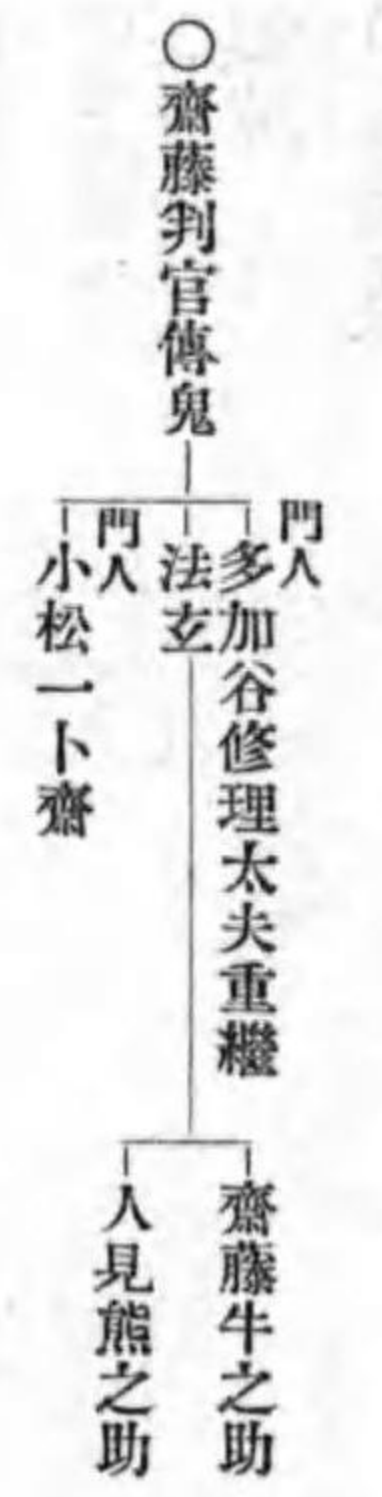 ○齋藤判官傳鬼
門人
多加谷修理太夫重繼
法玄
門人
小松一卜齋
齋藤牛之助
人見熊之助